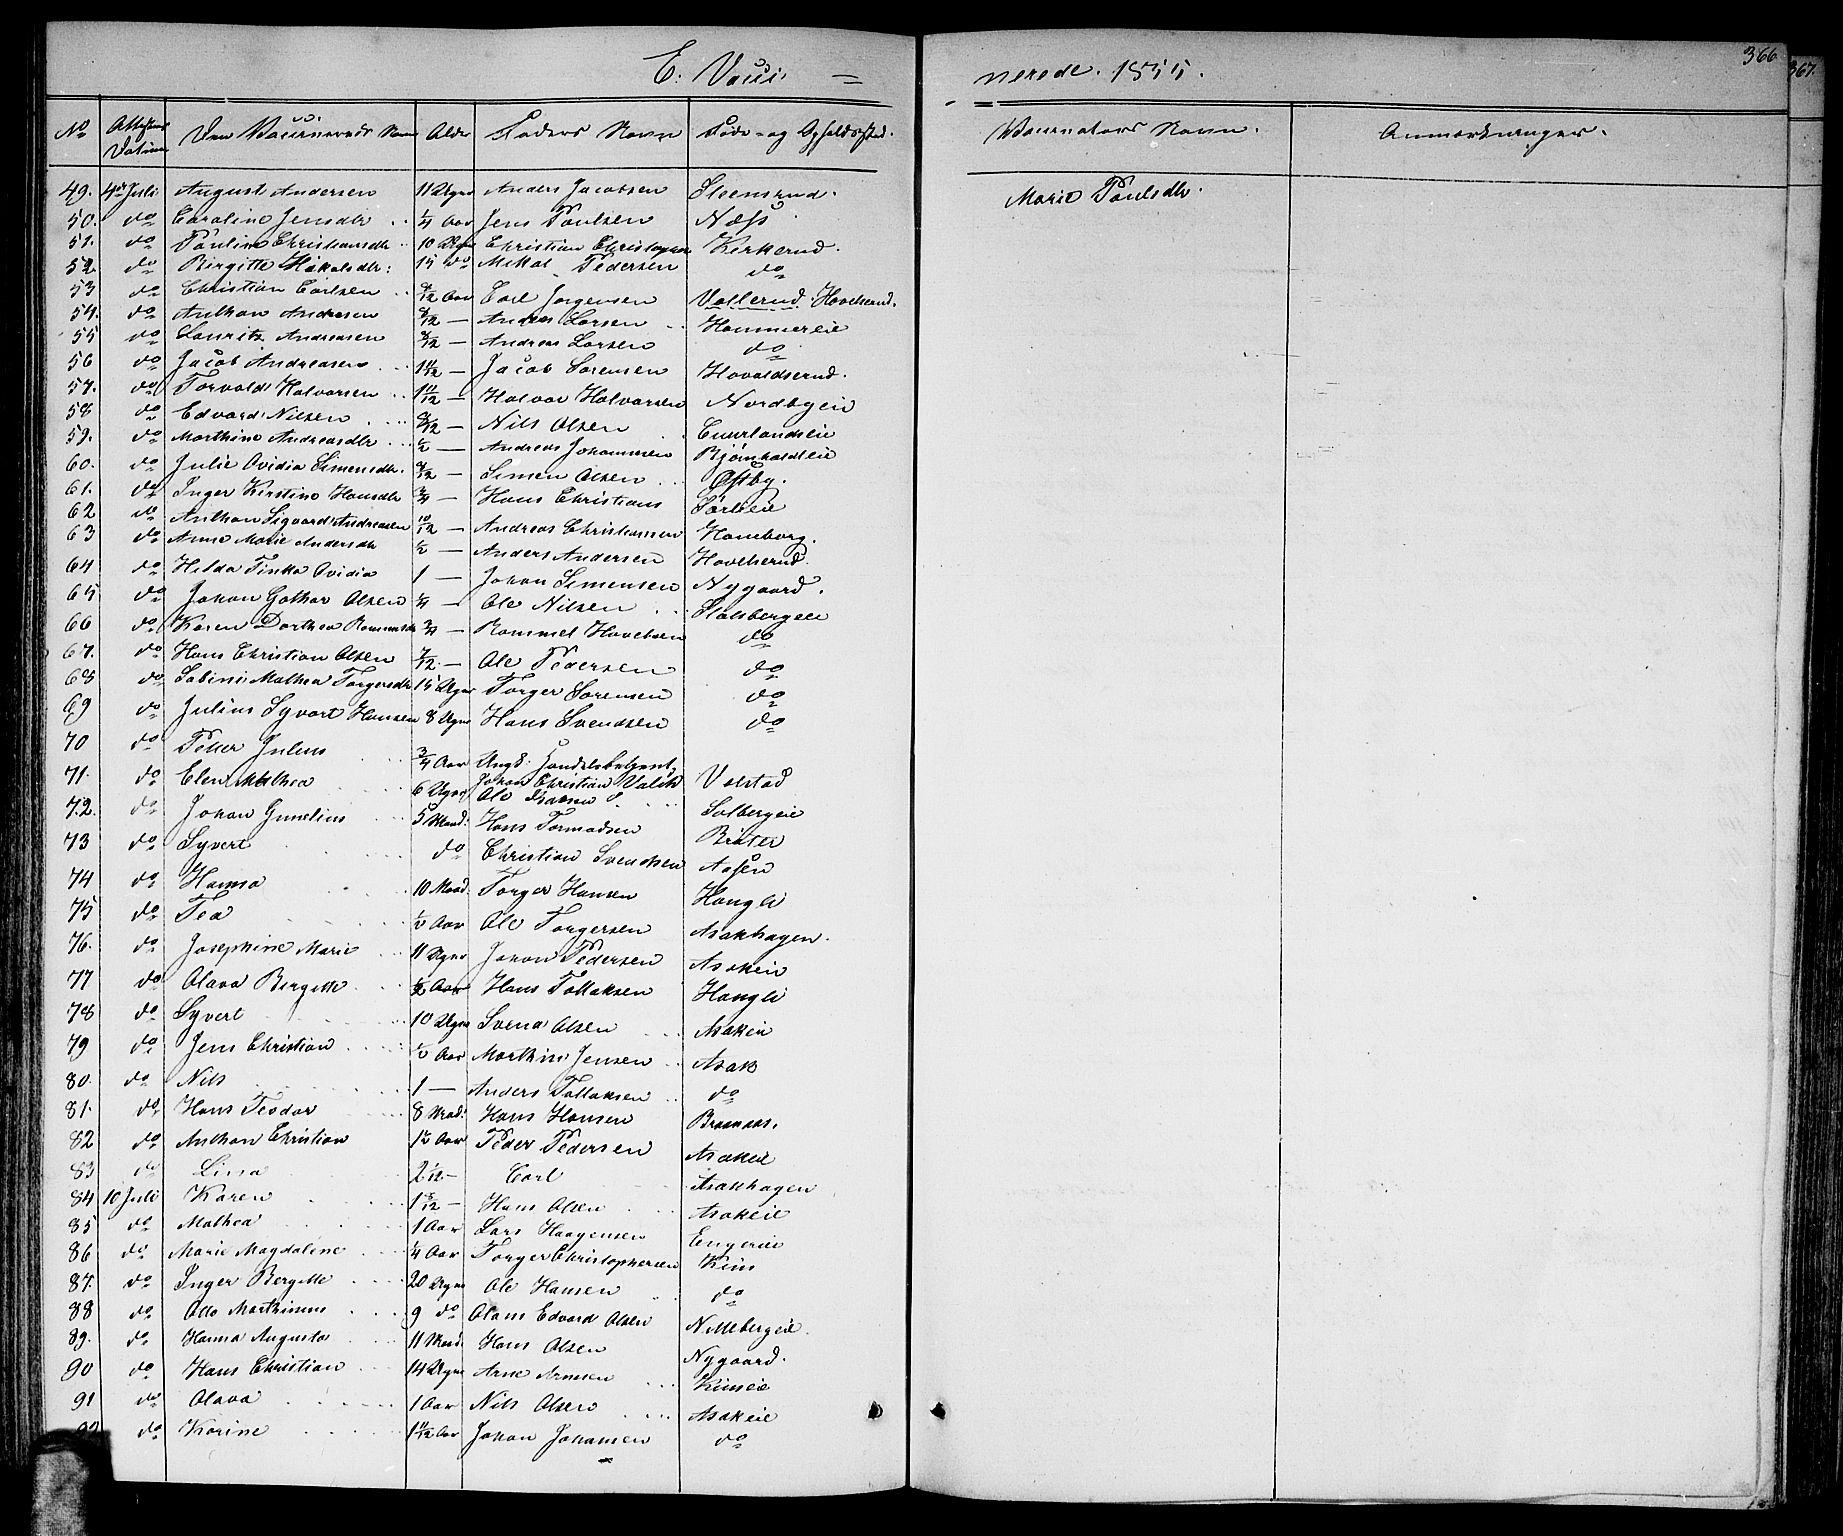 366
367.
E. Vacci = nerede. 1855.
No Attestens Datum Den Vaccineredes Navn Alder Faders Navn Føde- og Opholdssted. Vaccinators Navn. Anmærkninger.
49. 4de Juli August Andersen 11 Ugr Anders Jacobsen Steensrud. Marie Poulsdtr.
50. do Caroline Jensdtr 1/4 Aar Jens Poulsen Næss
51. do Pauline Christiansdtr 10 Ugr Christian Christophersen Kirkerud.
52. do Birgitte Mikalsdtr: 15 do Mikal Pedersen do
53 do Christian Carlsen 9/12 Aar Carl Jørgensen Vollerud. Hovelsrud.
54. do Anthon Andresen 8/12 — Andreas Larsen Hammereie
55 do Lauritz Andreasen 8/12 — Andreas Larsen do
56 do Jacob Andreasen 1 1/2 — Jacob Sørensen Hovaldsrud.
57. do Torvald Halvorsen 1 11/12 — Halvor Halvorsen Nordbyeie
58 do Edvard Nilsen 8/12 — Nils Olsen Cuurlandseie
59. do Marthine Andreasdtr 1/2 — Andreas Johannesen Bjørnholdteie
60. do Julie Ovidia Simensdtr. 9/12 — Simen Olsen Østby.
61. do Inger Kirstine Hansdtr 3/4 — Hans Christians Sørlieie
62 do Anthon Sigvard Andreasen 10/12 — Andreas Christiansen Haneborg.
63 do Anne Marie Andersdtr 1/2 — Anders Andersen Hovelsrud.
64 do Hilda Tinka Ovidia 1 — Johan Simensen Nygaard.
65 do Johan Gothar Olsen 1/4 — Ole Nilsen Stalsbergeie
66 do Karen Dorthea Rommensdtr 3/4 — Rommel Hovelsen do
67. do Hans Christian Olsen 7/12. — Ole Pedersen do
68 do Sabine Mathea Torgersdtr 15 Ugr Torger Sørensen do
69 do Julius Syvert Hansen 8 Ugr Hans Svendsen do
70 do Petter Julius 3/4 Aar Ungk: Handelsbetjent, Johan Christian Valik Volstad
71. do Elen Mathea 6 Ugr Ole Solbergeie
72. do Johan Gunelius 5 Maad: Hans Tormodsen Bråter
73 do Syvert do Christian Svendsen Aasen
74 do Hanna 10 Maad. Torger Hansen Hangli
75 do Tea 1/2 Aar Ole Torgersen Asakhagen.
76. do Josephine Marie 11 Ugr Johan Pedersen Asakeie
77 do Olava Bergitte 1/2 Aar Hans Tollaksen Hangli
78 do Syvert 10 Ugr Svend Olsen Asakeie
79 do Jens Christian 1/2 Aar Marthin Jensen Asak
80. do Nils 1 — Anders Tollaksen do
81. do Hans Teodor 8 Maad: Hans Hansen
82 do Anthon Christian 1 1/2 Aar Peder Pedersen Asakeie
83 do Lina 2 1/12 — Carl Asakhagen
84 10 Juli Karen 1 8/12 — Hans Olsen Asakeie
85 do Mathea 1 Aar Lars Haagensen Engereie
86 do Marie Magdaline 1/4 Aar Torger Christophersen Kius
87. do Inger Bergitte 20 Ugr Ole Hansen do
88 do Otto Marthinius 9 do Olaus Edvard Olsen Nittebergeie.
89. do Hanna Augusta 11 Maad. Hans Olsen Nygaard.
90 do Hans Christian 14 Ugr Arne Arnesen Kiuseie
91 do Olava 1 Aar Nils Olsen Asakeie
92 do Karine 1 11/12 Aar Johan Johansen do